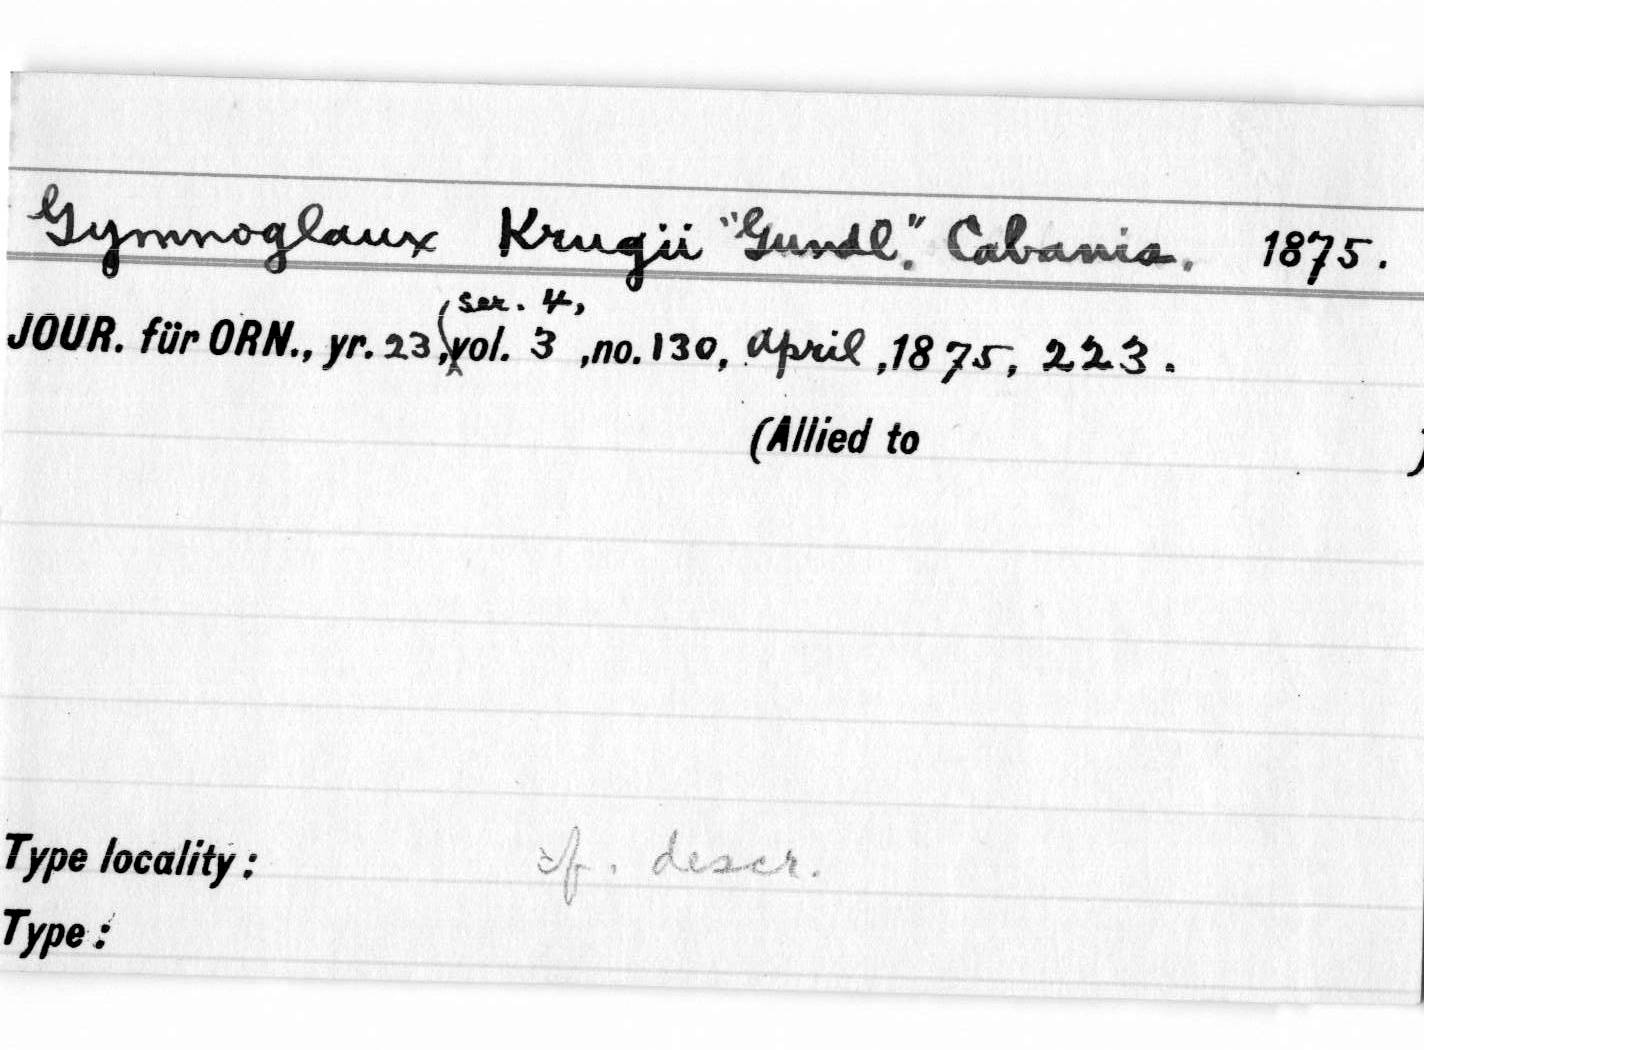 Gymnoglaux Krugii "Gundl." Cabanis. 1875.
(ser. 4,
JOUR. für ORN., yr. 23, vol. 3 ,no. 130, April ,1875, 223.
(Allied to )
Type locality: cf. descr.
Type: